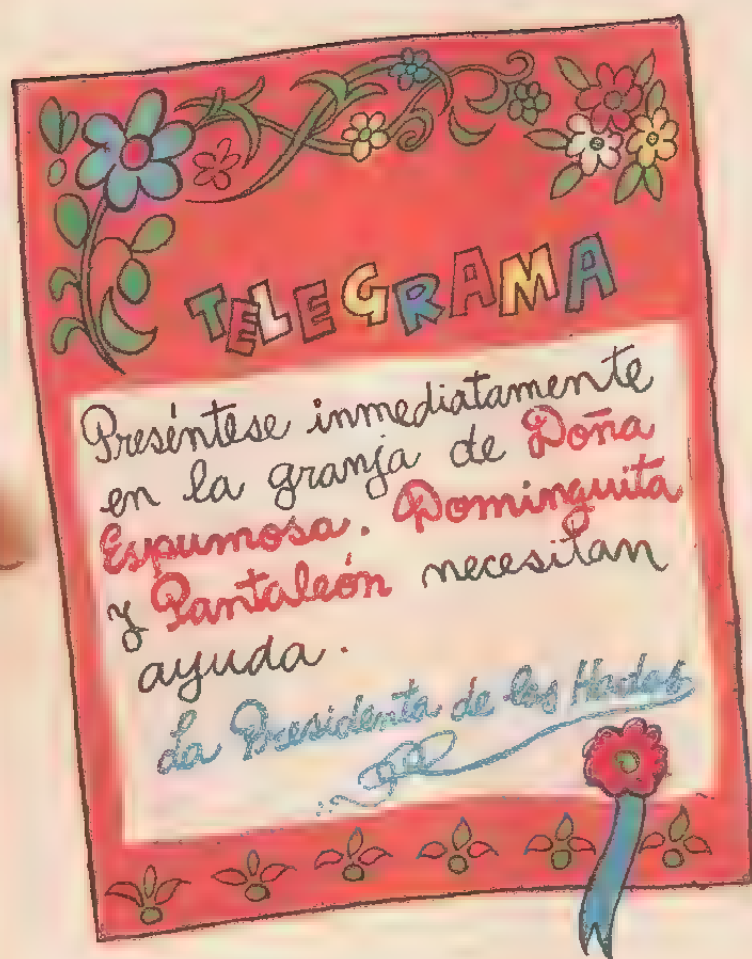 TELEGRAMA
Preséntese inmediatamente
en la granja de Doña
Espumosa. Dominguita
y Pantaleón necesitan
ayuda.
La Presidenta de las Hadas